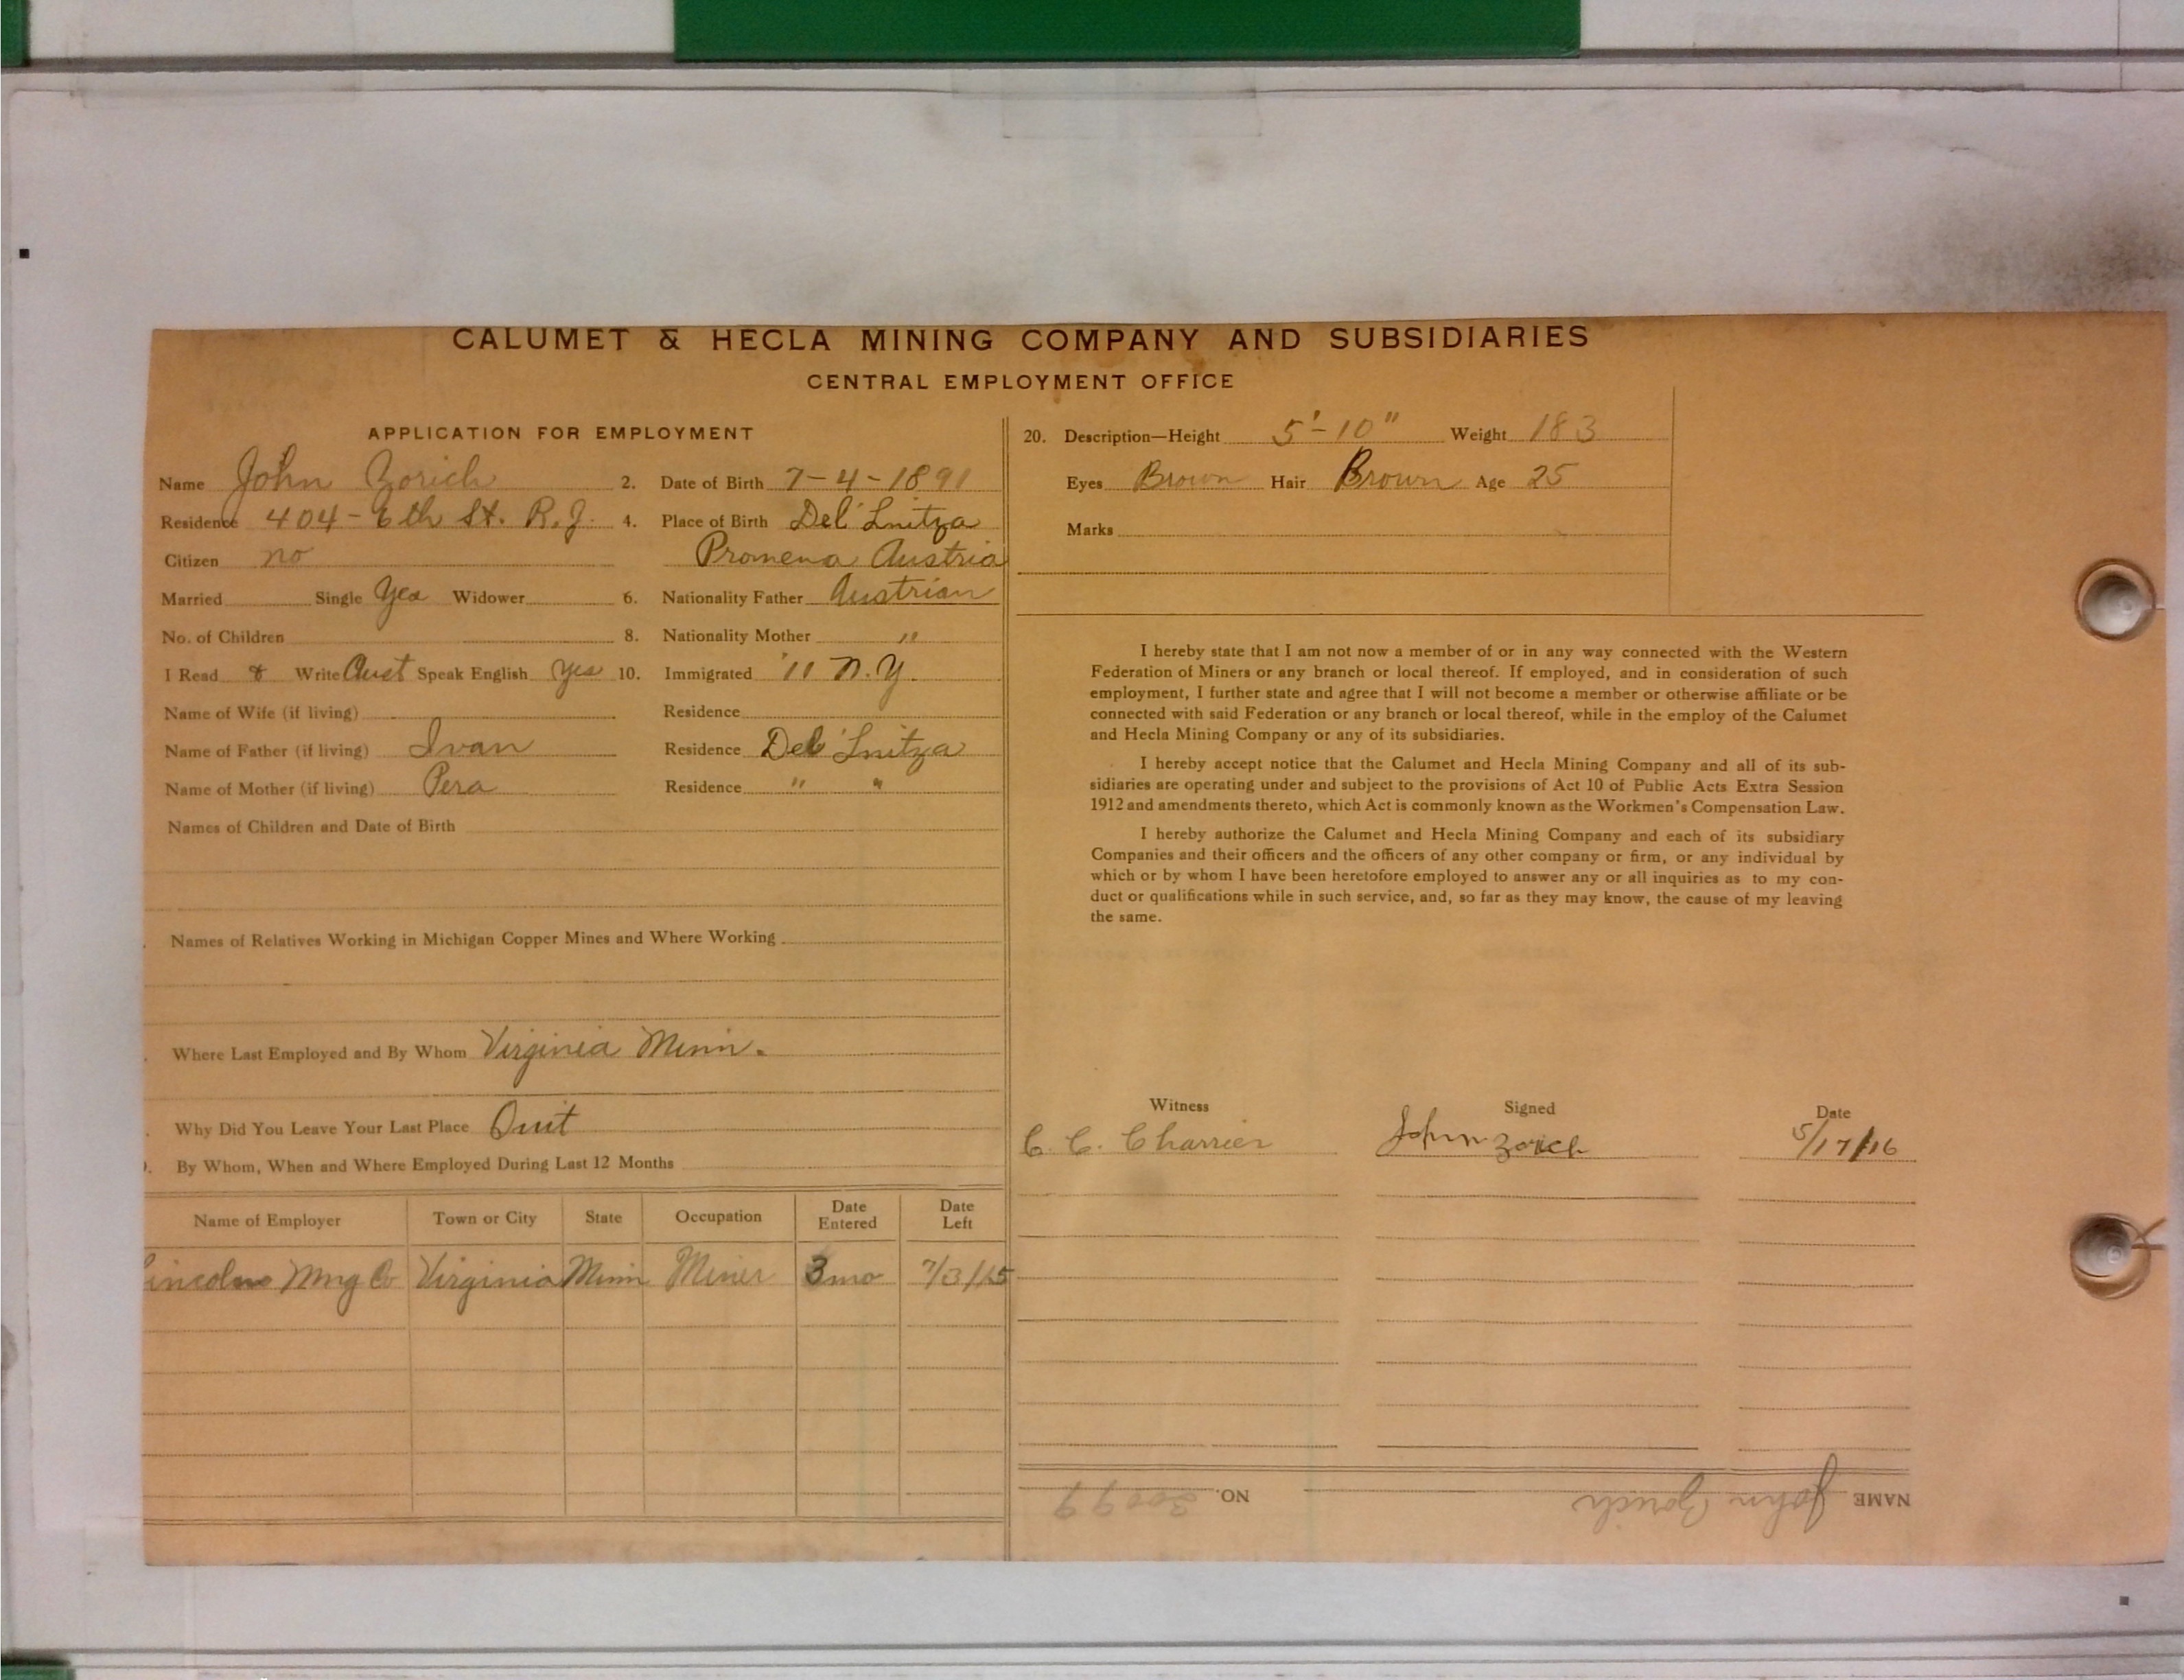 CALUMET & HECLA MINING COMPANY AND SUBSIDIARIES
CENTRAL EMPLOYMENT OFFICE
APPLICATION FOR EMPLOYMENT
Name John Zorich 2. Date of Birth 7-4-1891
Residence 404-6th St. R.J. 4. Place of Birth Del Lnitza
Citizen no Promena Austria
Married Single Yes Widower 6. Nationality Father Austrian
No. of Children 8. Nationality Mother "
I Read & Write Aust Speak English Yes 10. Immigrated '11 N.Y.
Name of Wife (if living) Residence
Name of Father (if living) Ivan Residence Del Lnitza
Name of Mother (if living) Pera Residence " "
Names of Children and Date of Birth
Names of Relatives Working in Michigan Copper Mines and Where Working
Where Last Employed and By Whom Virginia Minn.
Why Did You Leave Your Last Place Quit
By Whom, When and Where Employed During Last 12 Months
Name of Employer Town or City State Occupation Date Entered Date Left
Lincoln Mng Co Virginia Minn Miner 3 mo 7/3/15
20. Description—Height 5'-10" Weight 183
Eyes Brown Hair Brown Age 25
Marks
I hereby state that I am not now a member of or in any way connected with the Western
Federation of Miners or any branch or local thereof. If employed, and in consideration of such
employment, I further state and agree that I will not become a member or otherwise affiliate or be
connected with said Federation or any branch or local thereof, while in the employ of the Calumet
and Hecla Mining Company or any of its subsidiaries.
I hereby accept notice that the Calumet and Hecla Mining Company and all of its sub-
sidiaries are operating under and subject to the provisions of Act 10 of Public Acts Extra Session
1912 and amendments thereto, which Act is commonly known as the Workmen's Compensation Law.
I hereby authorize the Calumet and Hecla Mining Company and each of its subsidiary
Companies and their officers and the officers of any other company or firm, or any individual by
which or by whom I have been heretofore employed to answer any or all inquiries as to my con-
duct or qualifications while in such service, and, so far as they may know, the cause of my leaving
the same.
Witness Signed Date
C. C. Charrier John Zorich 5/17/16
NAME John Zorich NO.